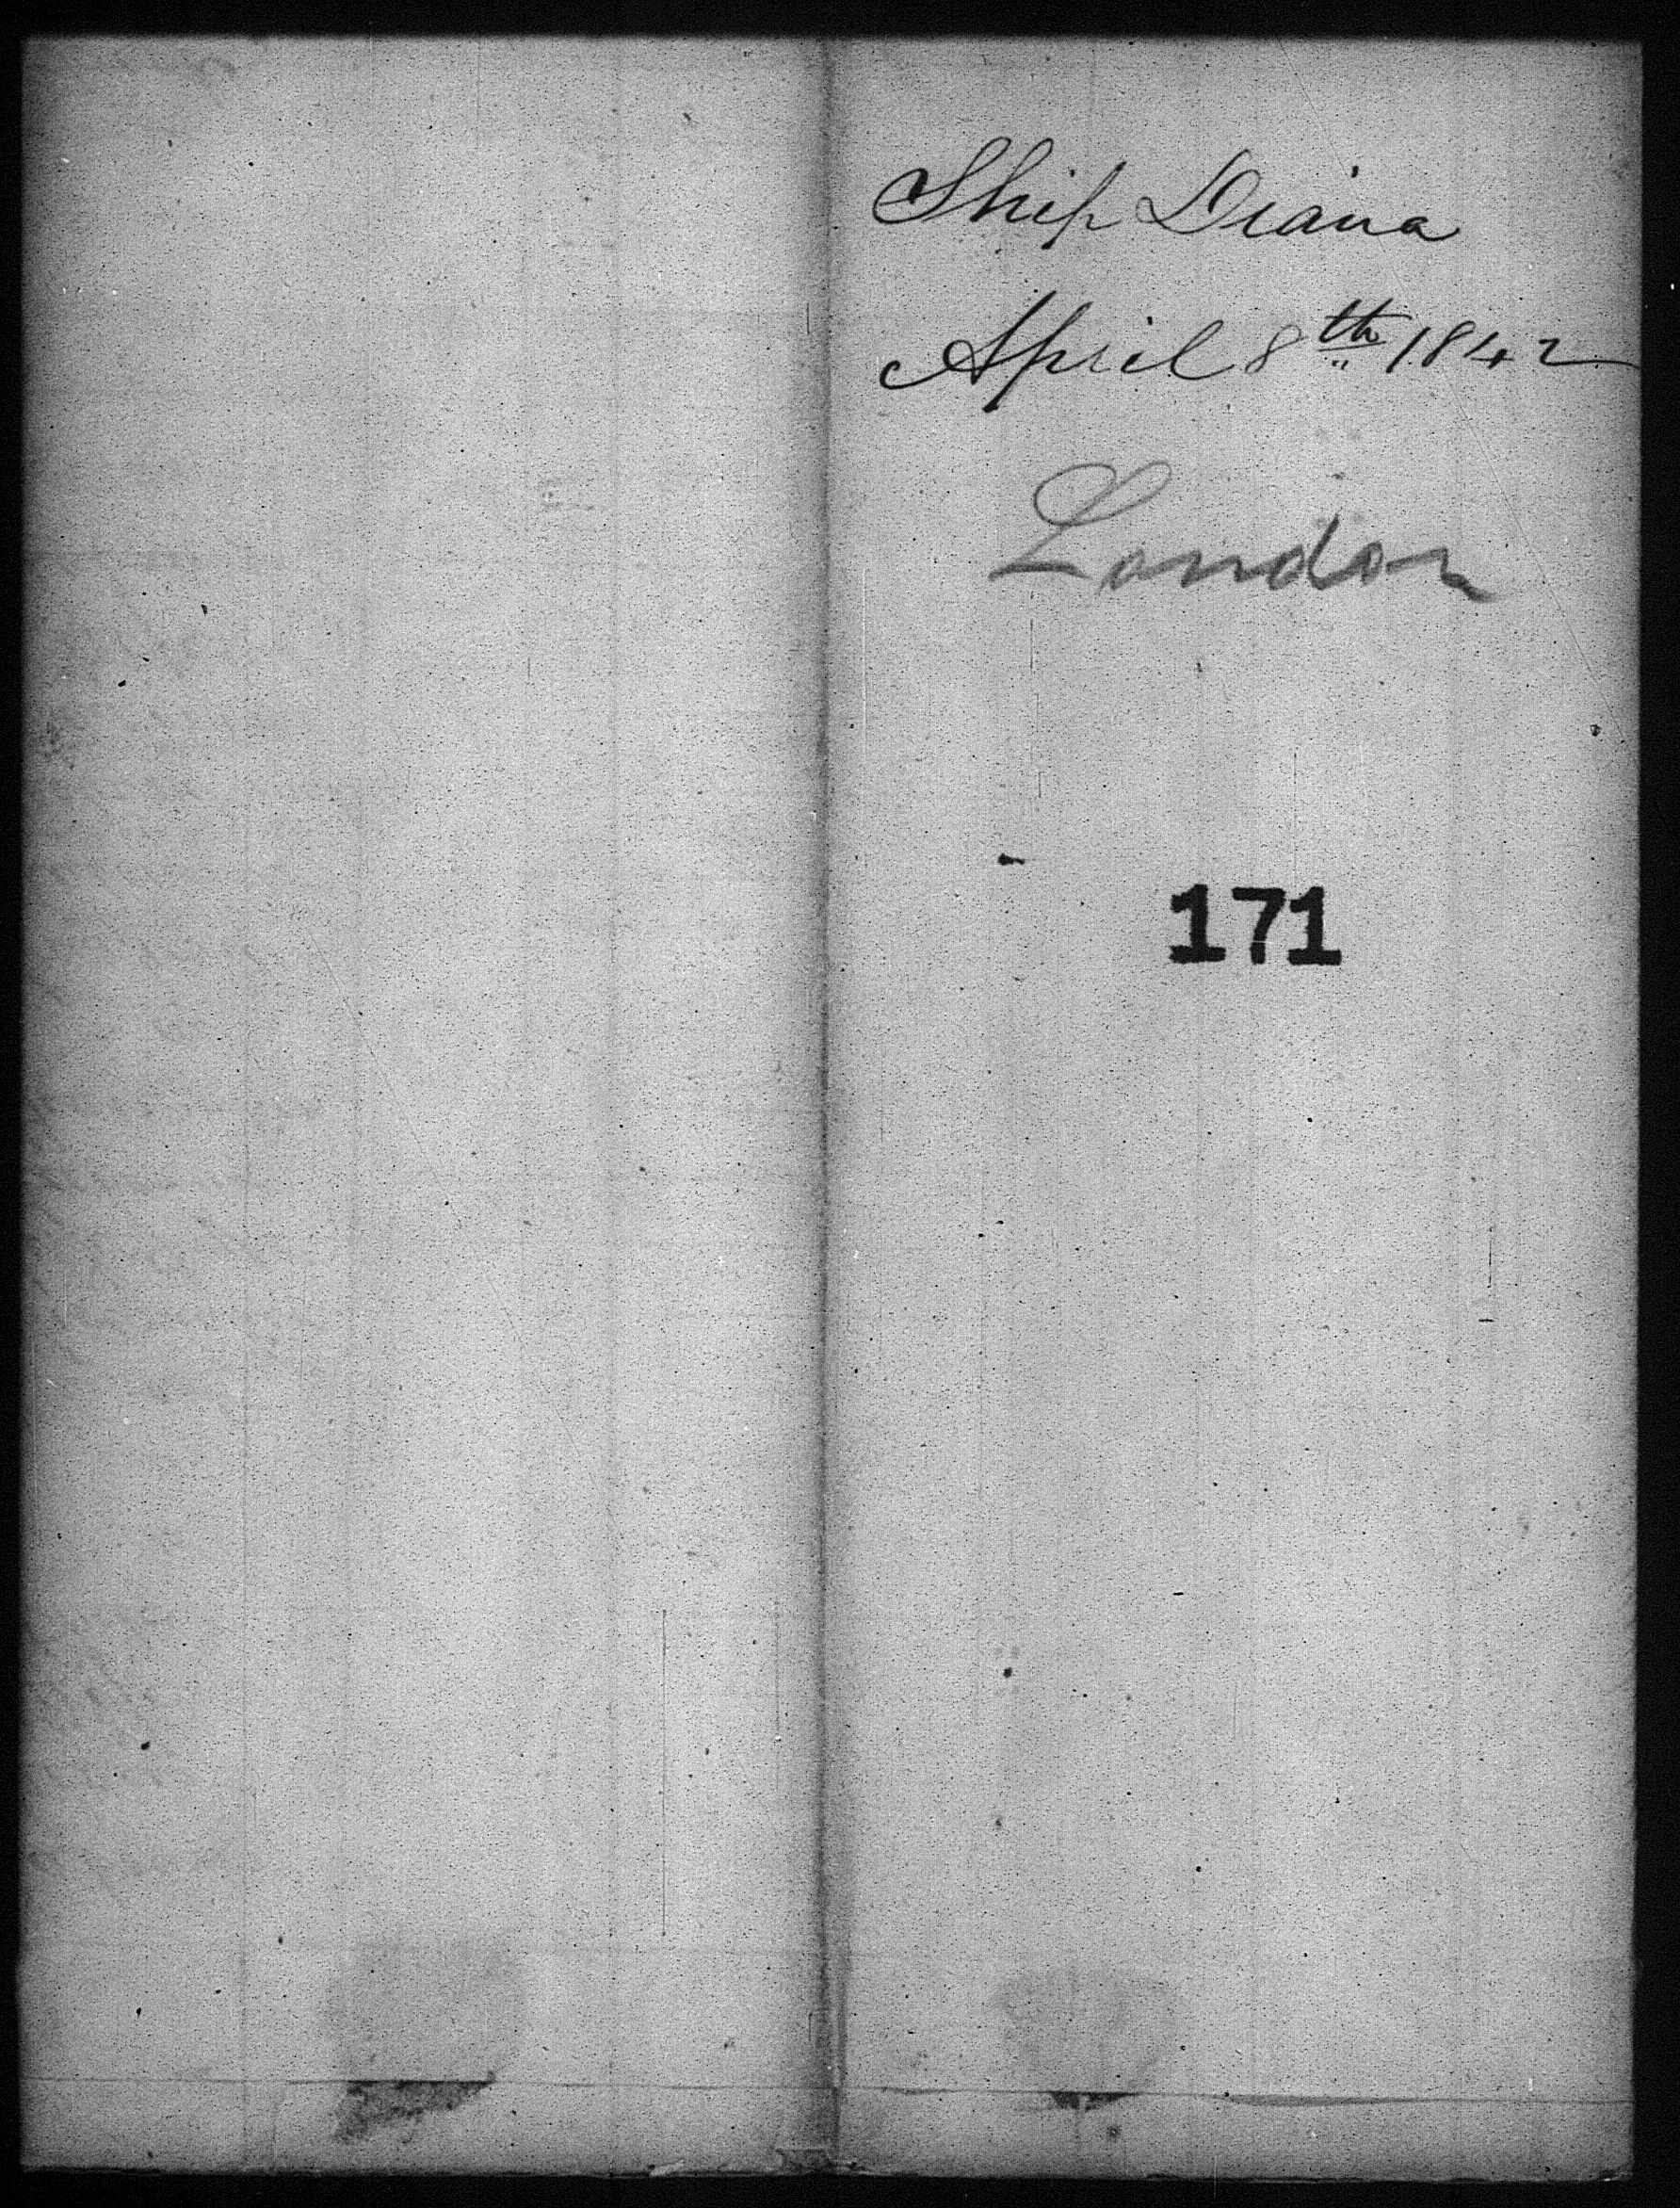 Ship Diana
April 8th 1842
London
171